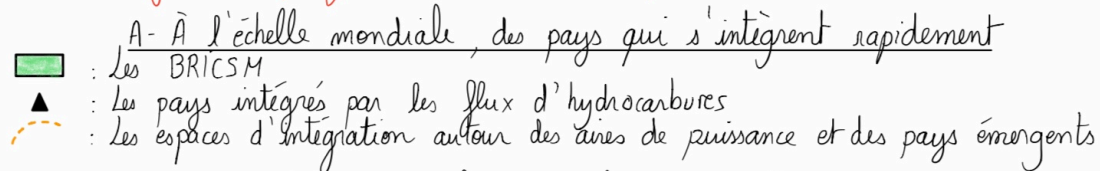 A- À l'échelle mondiale, des pays qui s'intègrent rapidement
: Les BRICSM
: Les pays intégrés par les flux d'hydrocarbures
: Les espaces d'intégration autour des aires de puissance et des pays émergents